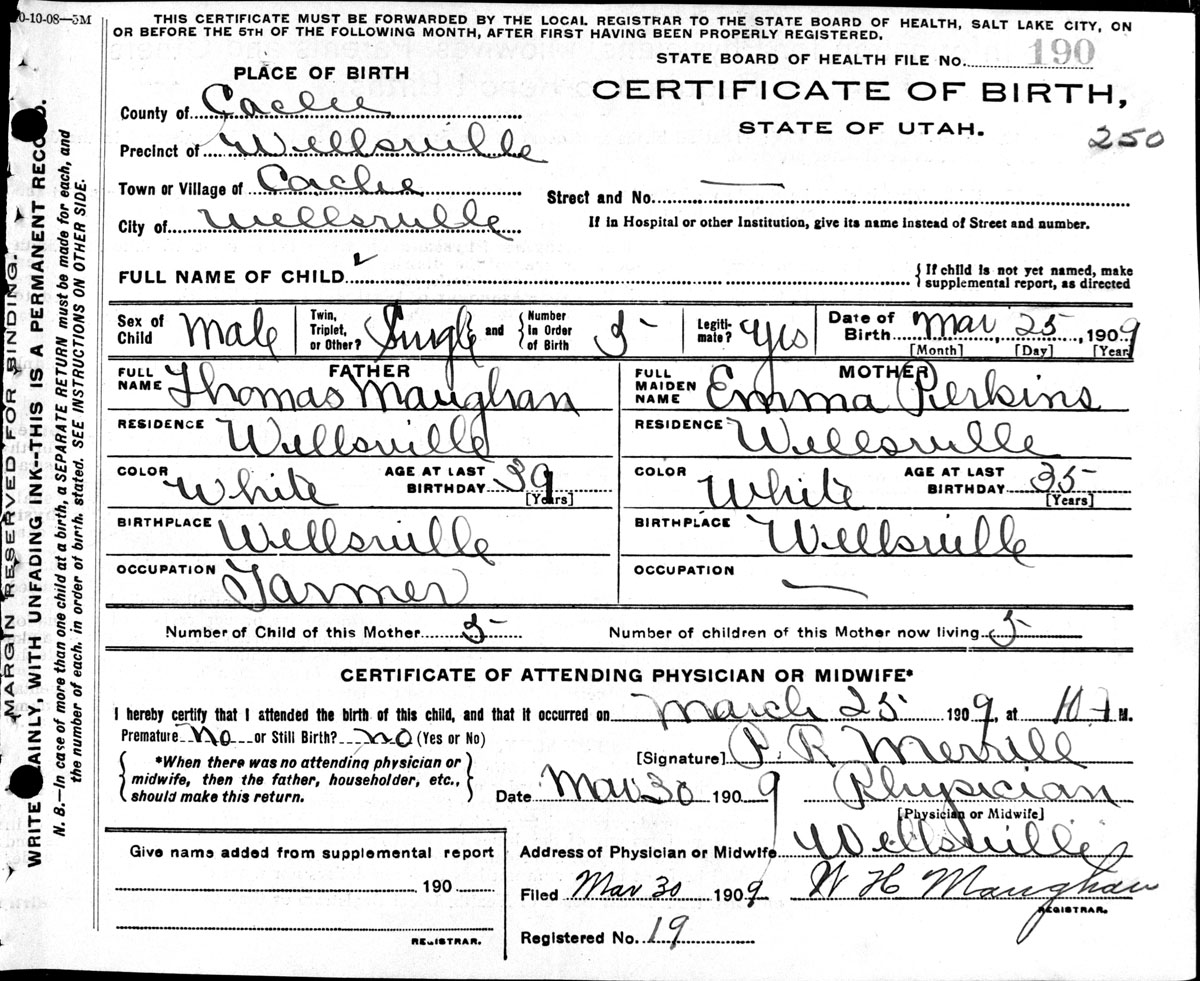 0-10-08—5M
THIS CERTIFICATE MUST BE FORWARDED BY THE LOCAL REGISTRAR TO THE STATE BOARD OF HEALTH, SALT LAKE CITY, ON
OR BEFORE THE 5TH OF THE FOLLOWING MONTH, AFTER FIRST HAVING BEEN PROPERLY REGISTERED.
STATE BOARD OF HEALTH FILE No. 190
CERTIFICATE OF BIRTH,
STATE OF UTAH.
250
PLACE OF BIRTH
County of Cache
Precinct of Wellsville
Town or Village of Cache
City of Wellsville
Street and No. —
If in Hospital or other Institution, give its name instead of Street and number.
FULL NAME OF CHILD
If child is not yet named, make
supplemental report, as directed
Sex of Child Male
Twin, Triplet, or Other? Single and Number in Order of Birth 5
Legiti-mate? Yes
Date of Birth Mar, 25, 1909
[Month] [Day] [Year]
FATHER
FULL NAME Thomas Maughan
RESIDENCE Wellsville
COLOR White AGE AT LAST BIRTHDAY 39 [Years]
BIRTHPLACE Wellsville
OCCUPATION Farmer
MOTHER
FULL MAIDEN NAME Emma Perkins
RESIDENCE Wellsville
COLOR White AGE AT LAST BIRTHDAY 35 [Years]
BIRTHPLACE Wellsville
OCCUPATION —
Number of Child of this Mother 5 Number of children of this Mother now living 5
CERTIFICATE OF ATTENDING PHYSICIAN OR MIDWIFE*
I hereby certify that I attended the birth of this child, and that it occurred on March 25 1909, at 10 M.
Premature No or Still Birth? no (Yes or No)
*When there was no attending physician or
midwife, then the father, householder, etc.,
should make this return.
[Signature] P. R. Merrill
Date Mar 30 1909 Physician
[Physician or Midwife]
Address of Physician or Midwife Wellsville
Filed Mar 30 1909 W H Maughan
REGISTRAR.
Registered No. 19
Give name added from supplemental report
190
REGISTRAR.
MARGIN RESERVED FOR BINDING.
WRITE AINLY, WITH UNFADING INK--THIS IS A PERMANENT RECO D.
N. B.—In case of more than one child at a birth, a SEPARATE RETURN must be made for each, and
the number of each, in order of birth, stated. SEE INSTRUCTIONS ON OTHER SIDE.